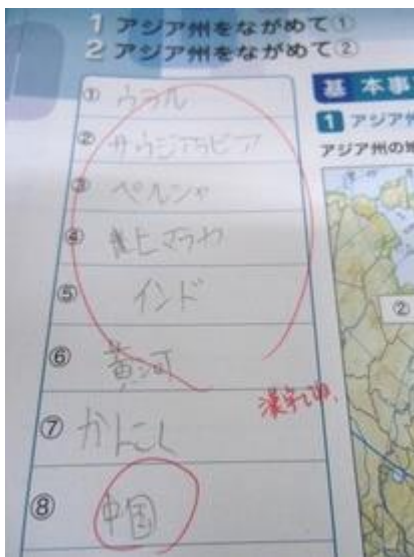 1 アジア州をながめて①
2 アジア州をながめて②
① ウラル
② サウジアラビア
③ ペルシャ
④ ヒマラヤ
⑤ インド
⑥ 黄河
⑦ かんこく
漢字で
⑧ 中国
基本事
1 アジア州
アジア州の地
②